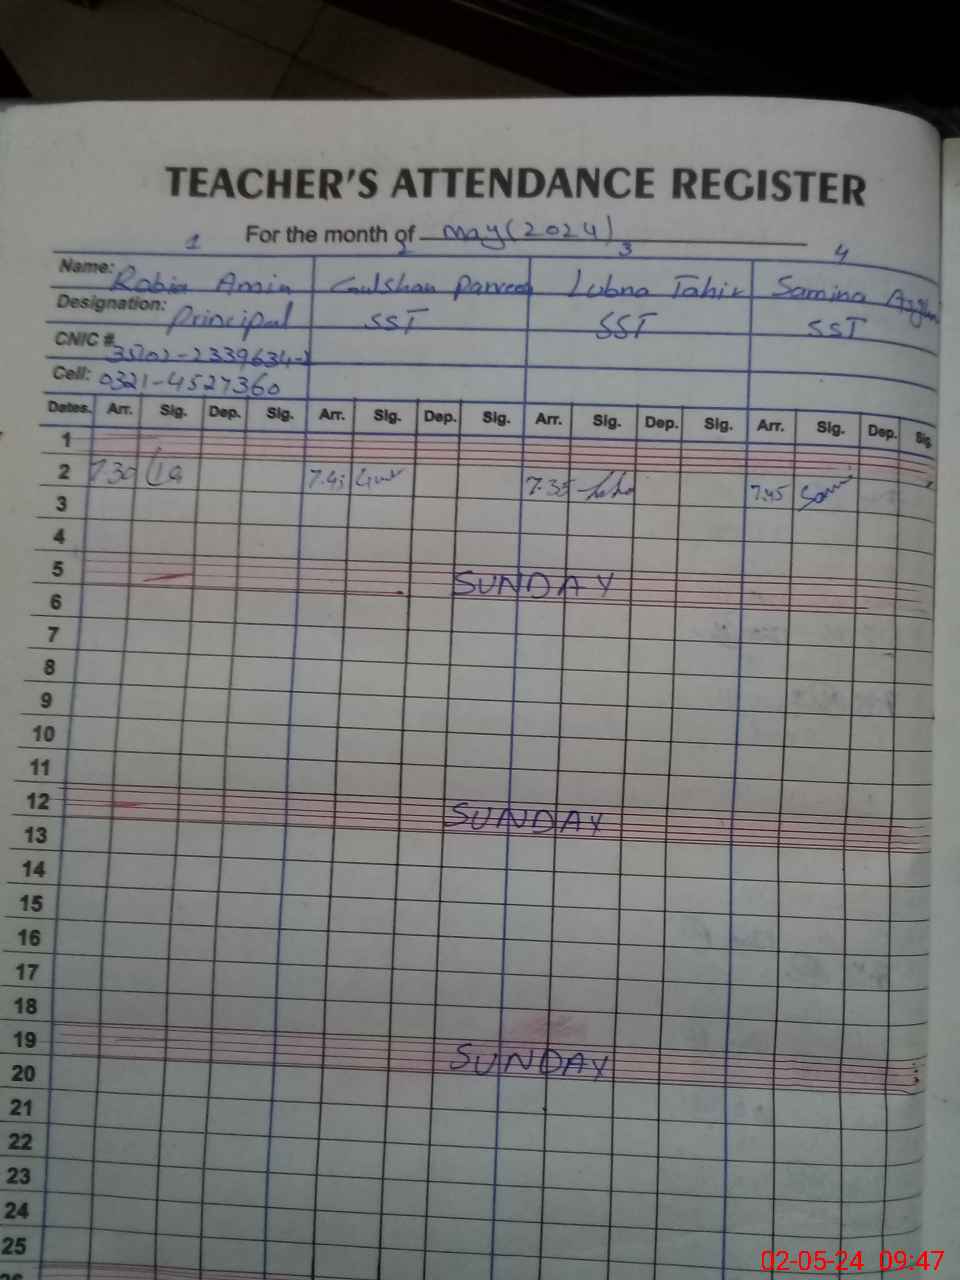 TEACHER'S ATTENDANCE REGISTER
For the month of May (2024)
1 2 3 4
Name: Robin Amin Gulshan Parveen Lubna Tahir Samina
Designation: Principal SST SST SST
CNIC #
Cell: 0321-4527360
Dates. Arr. Sig. Dep. Sig. Arr. Sig. Dep. Sig. Arr. Sig. Dep. Sig. Arr. Sig. Dep. Sig.
1
2 7.30 7.35 7.45
3
4
5 SUNDAY
6
7
8
9
10
11
12 SUNDAY
13
14
15
16
17
18
19 SUNDAY
20
21
22
23
24
25
02-05-24 09:47